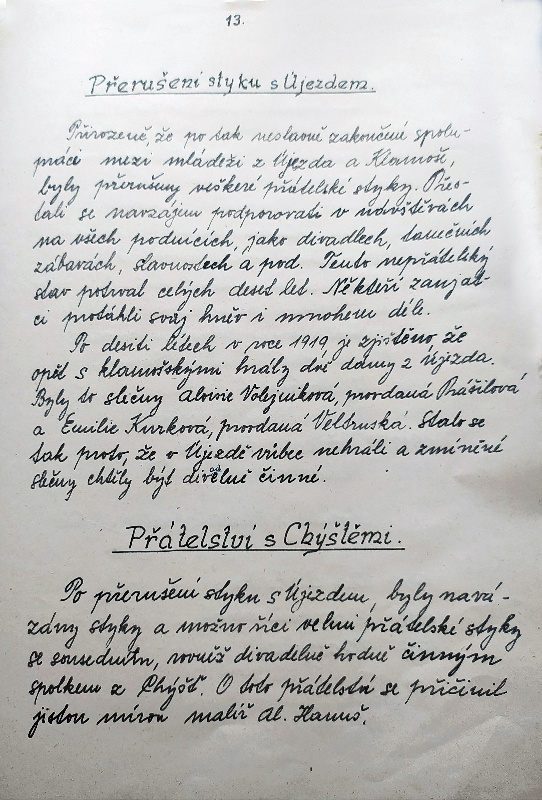 13.
Přerušení styku s Újezdem.
Přirozeně, že po tak neslavně zakončené spolu-
práci mezi mládeži z Újezda a Klamoše,
byly přerušeny veškeré přátelské styky. Přes-
tali se navzájem podporovati v návštěvách
na všech podnicích, jako divadlech, tanečních
zábavách, slavnostech a pod. Tento nepřátelský
stav potrval celých deset let. Někteří zaujat-
ci protáhli svůj hněv i mnohem déle.
Po desiti létech v roce 1919 je zjištěno, že
opět s klamošskými hrály dvě dámy z Újezda.
Byly to slečny Aloisie Volejníková, provdaná Prášilová
a Emilie Kurková, provdaná Veltruská. Stalo se
tak proto, že v Újezdě vůbec nehráli a zmíněné
slečny chtěly být divadelně činné.
Přátelství s Chýštěmi.
Po přerušení styku s Újezdem, byly navá-
zány styky a možno říci velmi přátelské styky
se sousedním, rovněž divadelně hodně činným
spolkem z Chýšť. O toto přátelství se přičinil
jistou mírou malíř Al. Hanuš.